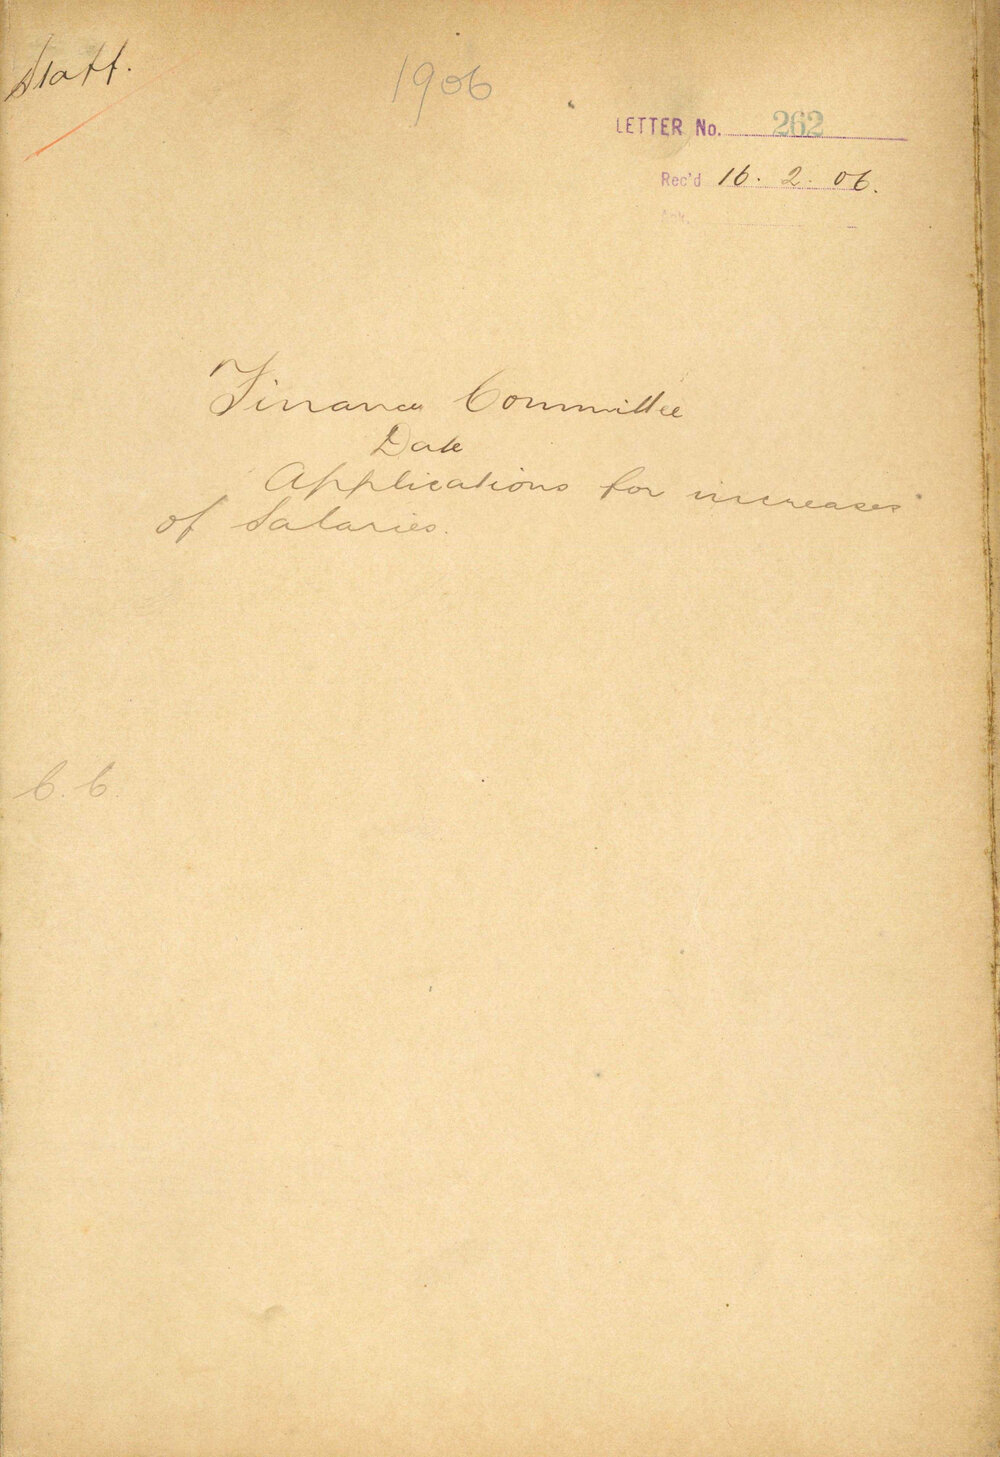 Staff.
1906
LETTER No. 262
Rec'd 16. 2. 06.
Ack.
Finance Committee
Date
Applications for increases
of Salaries.
C. C.